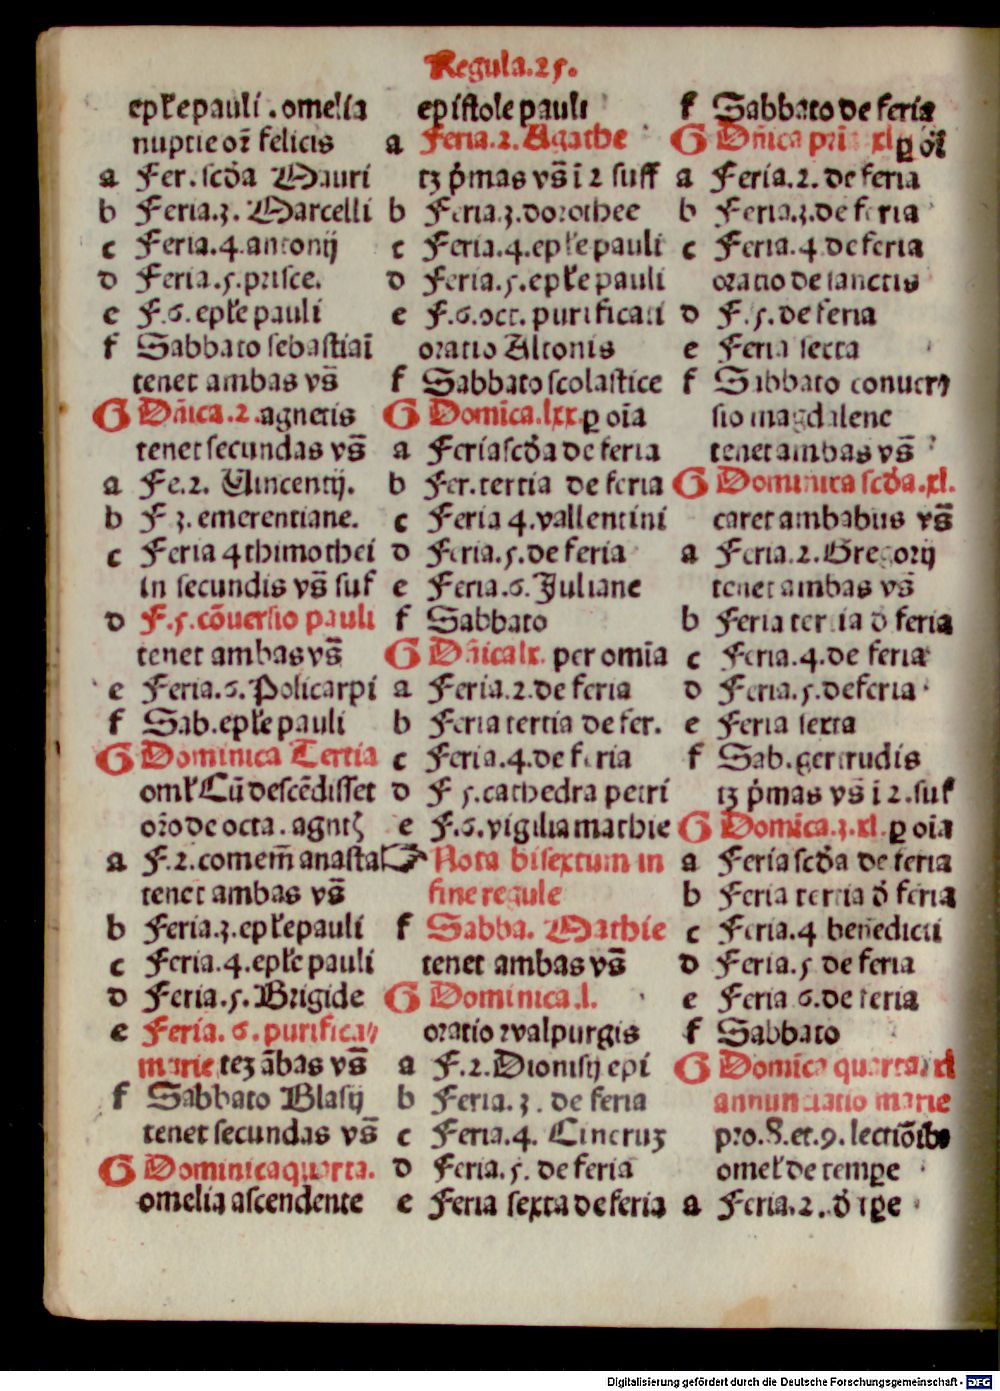 Regula.25.
epl̄e pauli . omelia
nuptie or̄ felicis
a Fer.scd̄a Mauri
b Feria.3. Marcelli
c Feria.4.antonij
d Feria.5.prisce.
e F.6.epl̄e pauli
f Sabbato sebastiāi
tenet ambas vs̄
G Dn̄ica.2.agnetis
tenet secundas vs̄
a Fe.2. Vincentij.
b F 3. emerentiane.
c Feria 4 thimothei
in secundis vs̄ suf
d F.5.cōuersio pauli
tenet ambas vs̄
e Feria.6.Policarpi
f Sab.epl̄e pauli
G Dominica Tertia
oml̄ Cū descēdisset
or̄o de octa.agnetꝭ
a F.2.comem̄ anasta
tenet ambas vs̄
b Feria.3.epl̄e pauli
c Feria.4.epl̄e pauli
d Feria.5.Brigide
e Feria. 6.purifica⸗
marie tez ābas vs̄
f Sabbato Blasij
tenet secundas vs̄
G Dominica quarta.
omelia ascendente
epistole pauli
a Feria.2.Agathe
tz p̄mas vs̄ ī 2 suff
b Feria.3.dorothee
c Feria.4.epl̄e pauli
d Feria.5.epl̄e pauli
e F.6.oct. purificati
oratio Altonis
f Sabbato scolastice
G Domica.lxx.ꝑ oīa
a Feria scd̄a de feria
b Fer.tertia de feria
c Feria 4.vallentini
d Feria.5.de feria
e Feria.6.Juliane
f Sabbato
G Dn̄ica lx. per omīa
a Feria.2.de feria
b Feria tertia de fer.
c Feria.4.de feria
d F 5.cathedra petri
e F.6.vigilia mathie
☞ Nota bisextum in
fine regule
f Sabba. Mathie
tenet ambas vs̄
G Dominica.l.
oratio ꝛ valpurgis
a F.2.Dionisij epi
b Feria.3. de feria
c Feria.4. Cinerum
d Feria.5. de feria
e Feria sexta de feria
f Sabbato de feria
G Dn̄ica pri xl ꝑ oī
a Feria.2. de feria
b Feria.3.de feria
c Feria.4 de feria
oratio de sanctis
d F.5.de feria
e Feria sexta
f Sabbato conuerꝰ
sio magdalene
tenet ambas vs̄
G Dominica scd̄a.xl.
caret ambabus vs̄
a Feria.2.Gregorij
tenet ambas vs̄
b Feria tertia d̄ feria
c Feria.4.de feria
d Feria.5.de feria
e Feria sexta
f Sab.gertrudis
tz p̄mas vs̄ ī 2.suf
G Domīca.3.xl. ꝑ oīa
a Feria scd̄a de feria
b Feria tertia d̄ feria
c Feria.4 benedicti
d Feria.5 de feria
e Feria 6.de feria
f Sabbato
G Domīca quarta xl
annunciatio marie
pro.8.et.9.lectiōibꝰ
omel̄ de tempe
a Feria.2. d̄ tꝑe
Digitalisierung gefördert durch die Deutsche Forschungsgemeinschaft - DFG